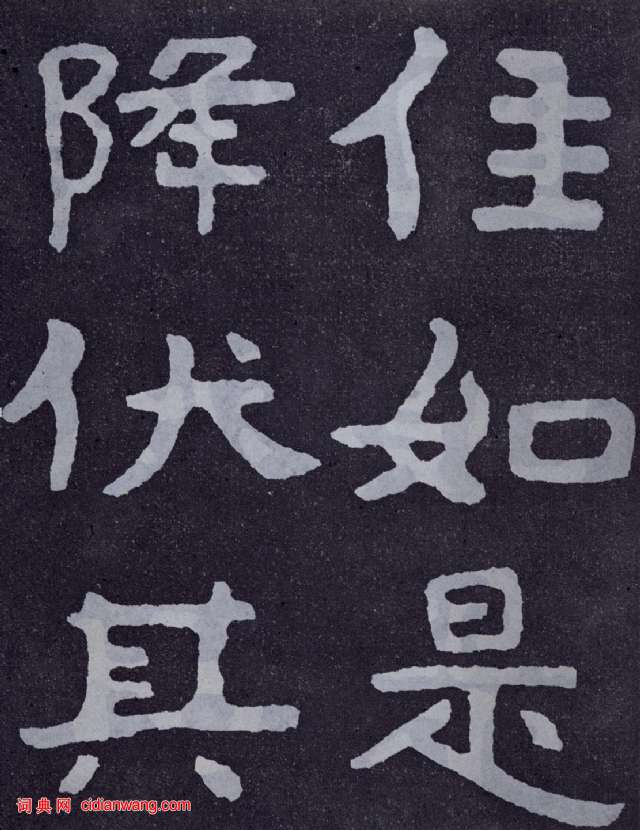 住如是
降伏其
词典网 cidianwang.com